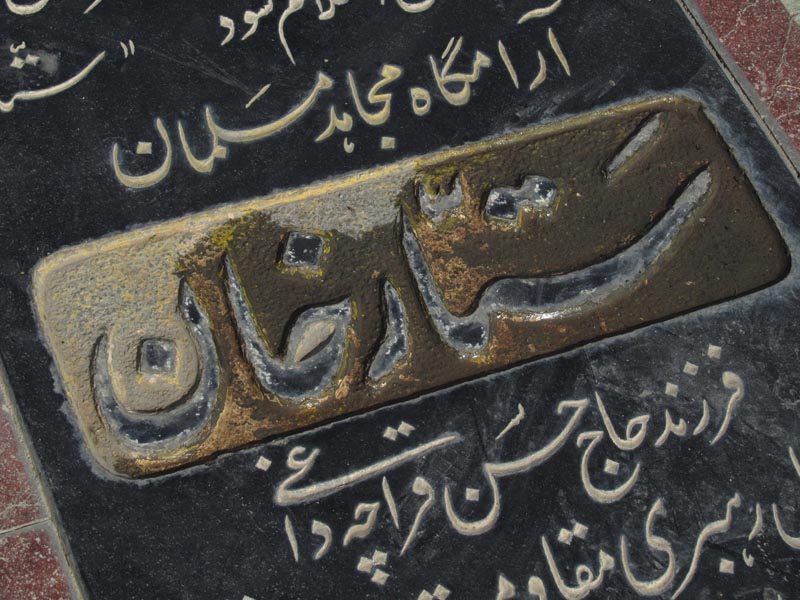 شود
"ستّا
آرامگاه مجاهد مسلمان
ستّارخان
فرزند حاج حسن قراچه داغی
رهبری مقاومت